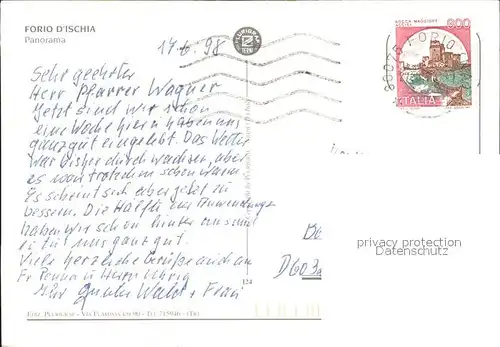 FORIO D'ISCHIA
Panorama
14.6.98
Sehr geehrter
Herr Pfarrer Wagner
Jetzt sind wir schon
eine Woche hier u haben uns
ganz gut eingelebt. Das Wetter
war bisher durchwachsen, aber
es war trotzdem schön warm
Es scheint sich aber jetzt zu
bessern. Die Hälfte der Anwendungen
haben wir schon hinter uns und
es tut uns ganz gut.
Viele herzliche Grüße auch an
Fr und Herrn
Ihr Walt + Frau
EDIZ. PLURIGRAF - VIA FLAMINIA KM 90 - TEL. 715946 - (TR)
124
PLURIGRAF
TERNI
ROCCA MAGGIORE
ASSISI
800
ITALIA
80075 FORIO
D603
privacy protection
Datenschutz